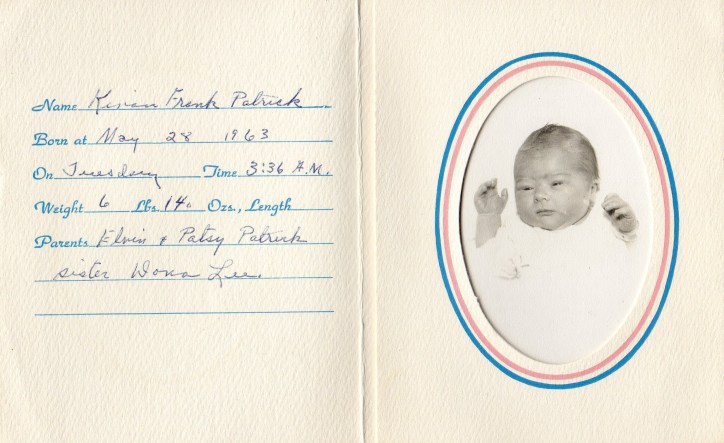 Name Kivian Frank Patrick
Born at May 28 1963
On Tuesday Time 3:36 A.M.
Weight 6 Lbs. 14 Ozs., Length
Parents Elvin & Patsy Patrick
sister Dona Lee.